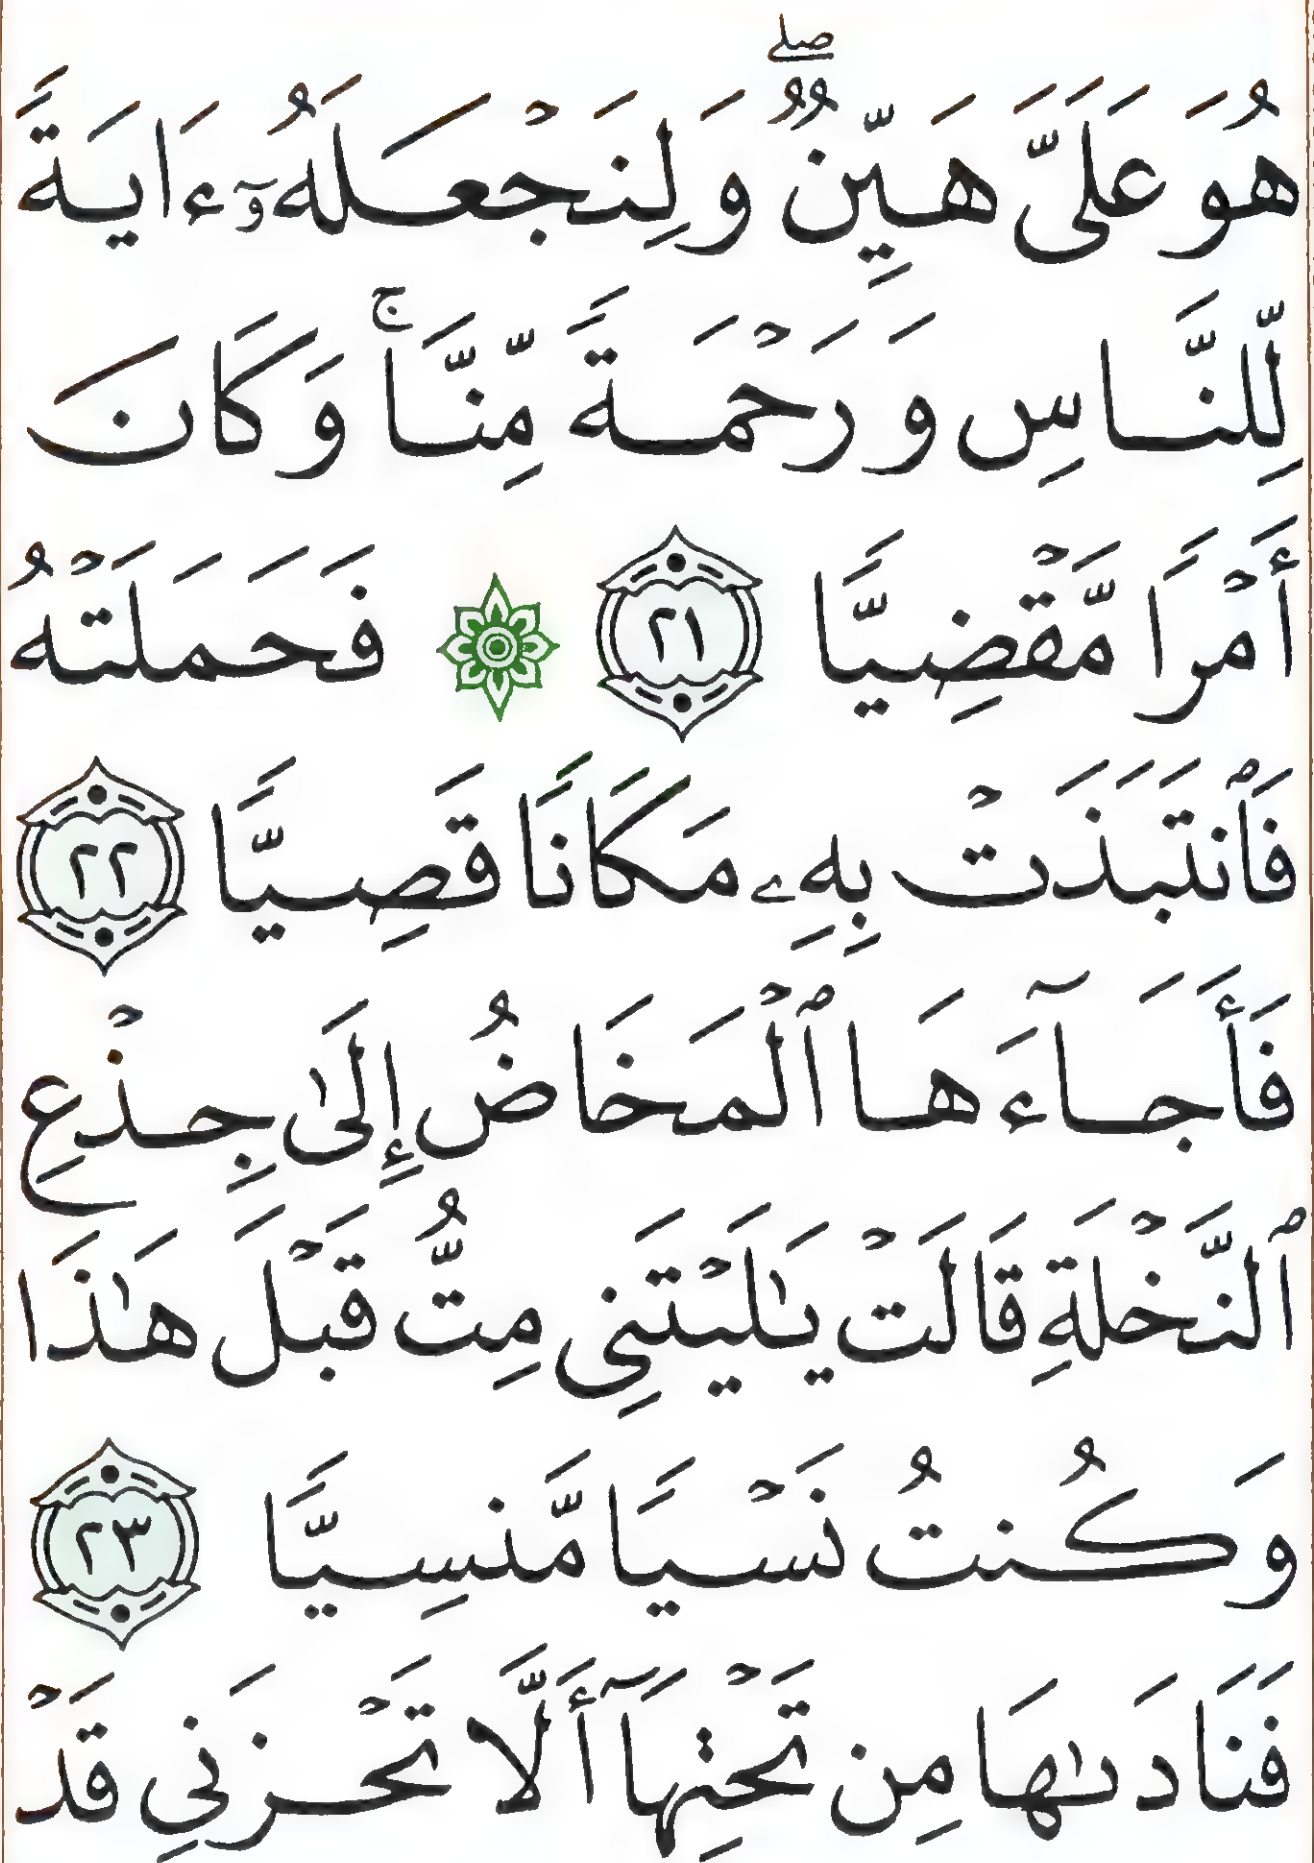 هُوَ عَلَىَّ هَيِّنٌۖ وَلِنَجْعَلَهُۥٓ ءَايَةً
لِّلنَّاسِ وَرَحْمَةً مِّنَّاۚ وَكَانَ
أَمْرًا مَّقْضِيًّا ٢١ ۞ فَحَمَلَتْهُ
فَٱنتَبَذَتْ بِهِۦ مَكَانًا قَصِيًّا ٢٢
فَأَجَآءَهَا ٱلْمَخَاضُ إِلَىٰ جِذْعِ
ٱلنَّخْلَةِ قَالَتْ يَٰلَيْتَنِى مِتُّ قَبْلَ هَٰذَا
وَكُنتُ نَسْيًا مَّنسِيًّا ٢٣
فَنَادَىٰهَا مِن تَحْتِهَآ أَلَّا تَحْزَنِى قَدْ